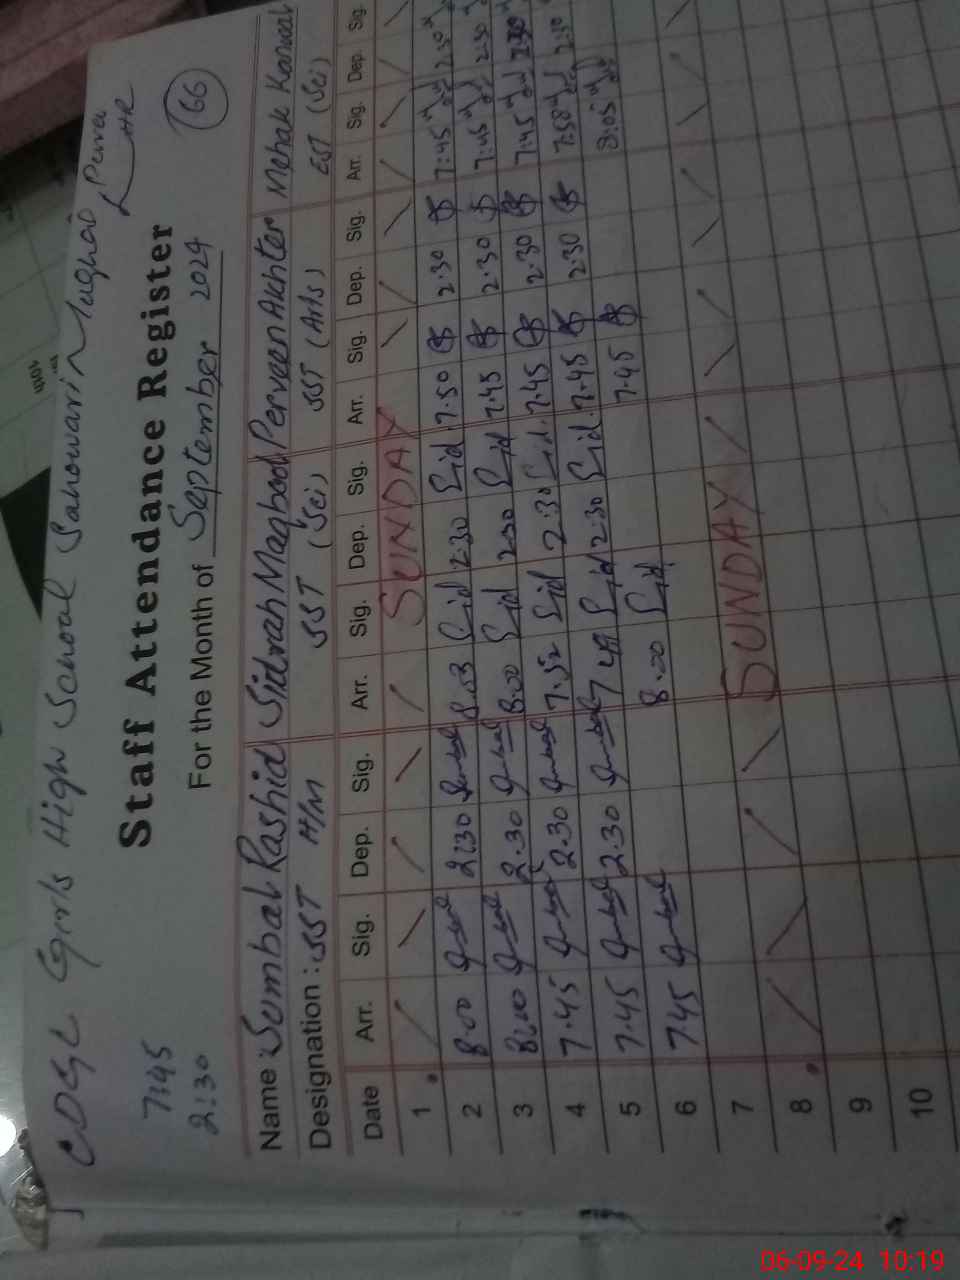 CDGL Girls High School Sanowarin Mughao
7:45
2:30
66
Staff Attendance Register
For the Month of September 2024
Name : Sumbal Rashid Sidrah Maqbool Perveen Akhter Mehak Kanwal
Designation : SST H/M SST (Sci) SST (Arts) EST (Sci)
Date Arr. Sig. Dep. Sig. Arr. Sig. Dep. Sig. Arr. Sig. Dep. Sig. Arr. Sig. Dep. Sig.
1 SUNDAY
2 8.00 2:30 8.03 Sid 2:30 Sid 7.50 2.30 7:45 2:30
3 8:00 2.30 8.00 Sid 2.30 Sid 7.45 2.30 7:45 2:30
4 7.45 2.30 7.52 Sid 2.30 Sid 7.45 2.30 7:45 2:30
5 7.45 2.30 7.49 Sid 2.30 Sid 7.45 2.30 7:58
6 7.45 8.00 Sid 7.45 8:05
7
8 SUNDAY
9
10
06-09-24 10:19